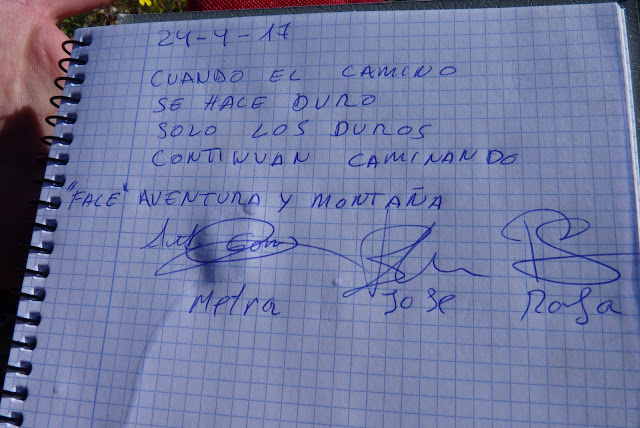 24-4-17
CUANDO EL CAMINO
SE HACE DURO
SOLO LOS DUROS
CONTINUAN CAMINANDO
"FALE" AVENTURA Y MONTAÑA
Metra Jose Rafa